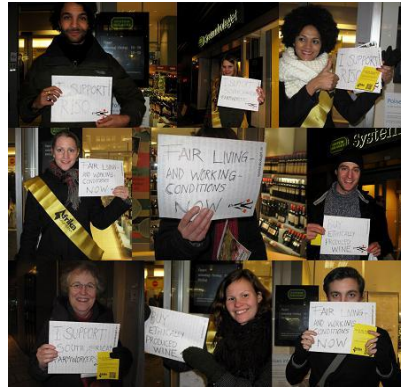 I SUPPORT
RISO
Systembolaget
I SUPPORT
I SUPPORT
RISO
FAIR LIVING-
AND WORKING-
CONDITIONS
NOW
Afrika
FAIR LIVING-
AND WORKING-
CONDITIONS
NOW
System
BUY
ETHICALLY
PRODUCED
WINE
I SUPPORT
SOUTH AFRICAN
FARMWORKERS
BUY
ETHICALLY
PRODUCED
WINE
FAIR LIVING-
AND WORKING-
CONDITIONS
NOW